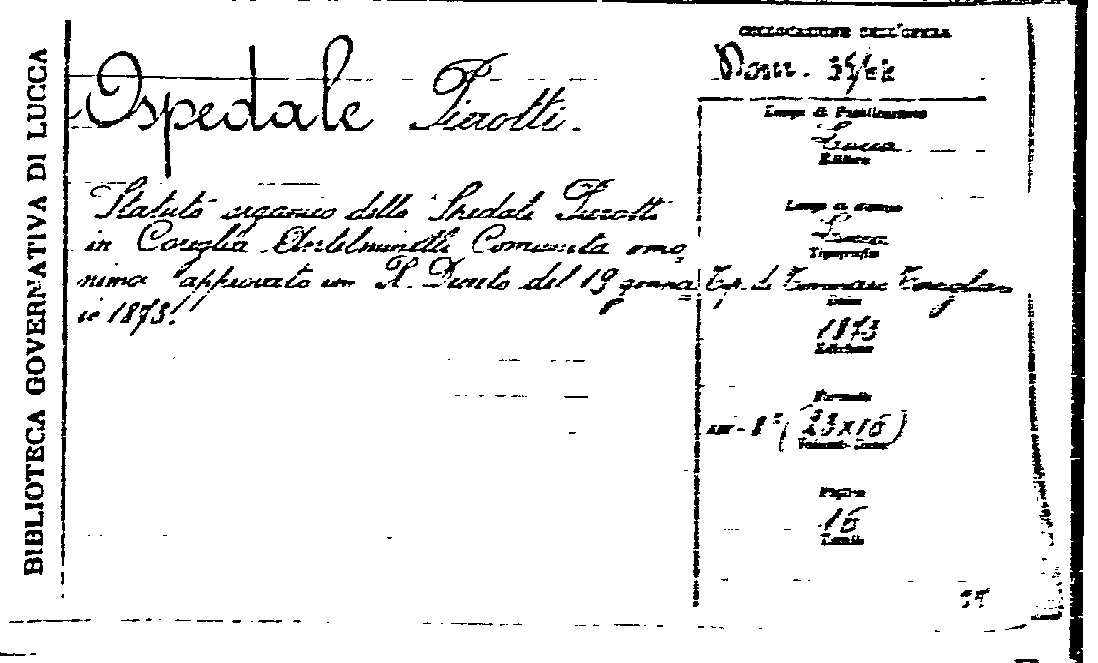 BIBLIOTECA GOVERNATIVA DI LUCCA
COLLOCAZIONE DELL'OPERA
Ospedale Pierotti.
Luogo di Pubblicazione
Lucca
Editore
Statuto organico dello Spedale Pierotti
in Coreglia Antelminelli Comunità omo
nimo approvato con R. Decreto del 19 genna
io 1873.
Luogo di stampa
Lucca
Tipografia
Tip. di Tommaso Torcigliani
Data
1873
Edizione
Formato
in-8° (23x16)
Pagine
16
Tavole